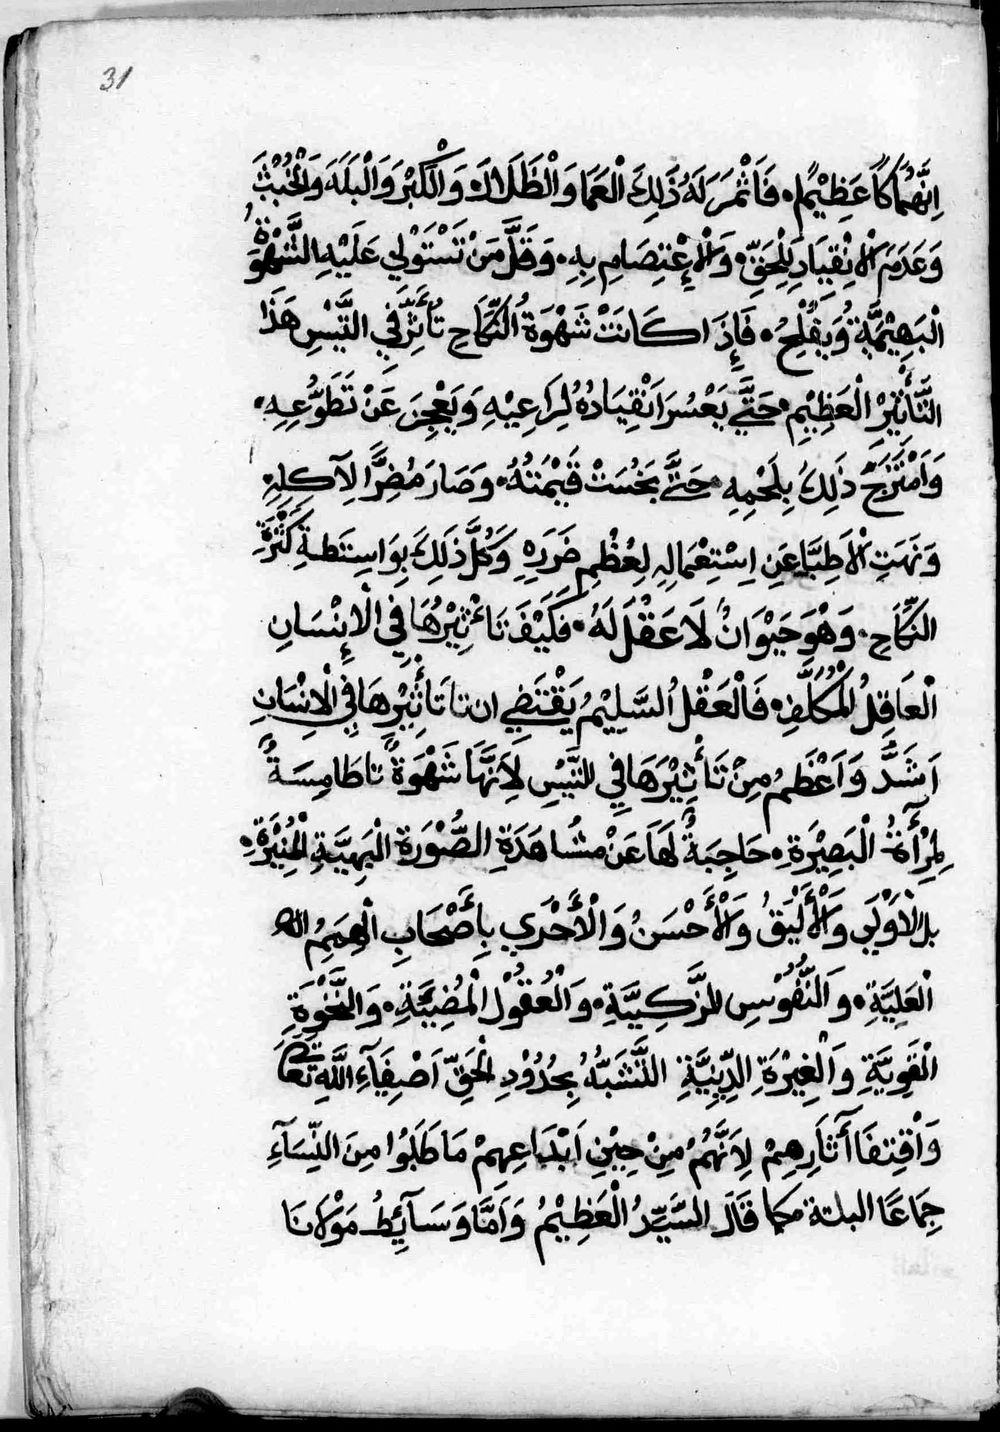 31
اِنَّهُمَاكًا عَظِيْمًا، فَاَثْمَرَ لَهُ ذَلِكَ الْعَمَا وَالْظَلَالَ وَالْكِبْرَ وَالْبَلَهَ وَالْخُبْثَ
وَعَدَمَ الْاِنْقِيَادِ لِلْحَقِّ، وَالْاِعْتِصَامِ بِهِ، وَقَلَّ مَنْ تَسْتَوْلِي عَلَيْهِ الشَّهْوَةُ
الْبَهِيْمِيَّةُ وَيُفْلِحُ، فَإِذَا كَانَتْ شَهْوَةُ النِّكَاحِ تُأَثِّرُ فِي التَّيْسِ هَذَا
التَّأْثِيْرَ الْعَظِيْمِ، حَتَّي يَعْسُرَ انْقِيَادُهُ لِرَاعِيْهِ وَيَعْجِزَ عَنْ تَطَوُّعِهِ،
وَاَمْتَزَجَ ذَلِكَ بِلَحْمِهِ، حَتَّي بَخُسَتْ قَيْمَتُهُ، وَصَارَ مُضِرًّا لِآكِلِهِ،
وَنَهَتِ الْاَطِبَّا عَنِ اِسْتِعْمَالِهِ لِعُظْمِ ضَرَرِهِ وَكُلَّ ذَلِكَ بِوَاسِطَةِ كَثْرَةِ
النِّكَاحِ، وَهْوَ حَيْوَانٌ لَا عَقْلَ لَهُ، فَكَيْفَ تَاءْثِيْرُهَا فِي الْاِنْسَانِ
الْعَاقِلُ الْمُكَلَّفِ، فَالْعَقْلُ السَّلِيْمُ يَقْتَضِي ان تاتَأثِيْرِهَا فِي الْاِنْسَانِ
اَشَدَّ وَاَعْظَمُ مِنْ تَأْثِيْرَهَا فِي التَّيْسِ لِاَنَّهَا شَهْوَةٌ تا طَامِسَةٌ
لِمِرْأَةُ الْبَصِيْرَةِ، حَاجِبَةٌ لَهَا عَنْ مُشَاهَدَةِ الصُّوْرَةِ الْبَهِيَّةِ الْمُنِيْرَةِ،
بل الْاَوْلَي وَالْأَلْيَقُ وَالْأَحْسَنُ وَالْأَحْرَي بِأَصْحَابِ الْهِمَمِ
الْعَلِيَّةِ، وَالنُّفُوْسِ الزَّكِيَّةِ، وَالْعُقُوْلِ الْمُضِيَّةِ، وَالنَّخْوَةِ
الْقَوِيَّةِ وَالْغِيْرَةِ الدِّيْنِيَّةِ التَّشَبُّهُ بِحُدُوْدِ الْحَقِّ اَصْفِيَآءِ اللَّهِ تَعَالَي
وَاَقْتِفَا أَثَارِهِمْ لِاَنَّهُمْ مِنْ حِيْنِ اَبْدَاعِهِمْ مَا طَلَبُوا مِنَ النِّسَآءِ
جِمَاعًا البتة كما قَالَ السَّيِّدُ الْعَظِيْمُ وَاَمَّا وَسَآئِطُ مَوْلَانَا